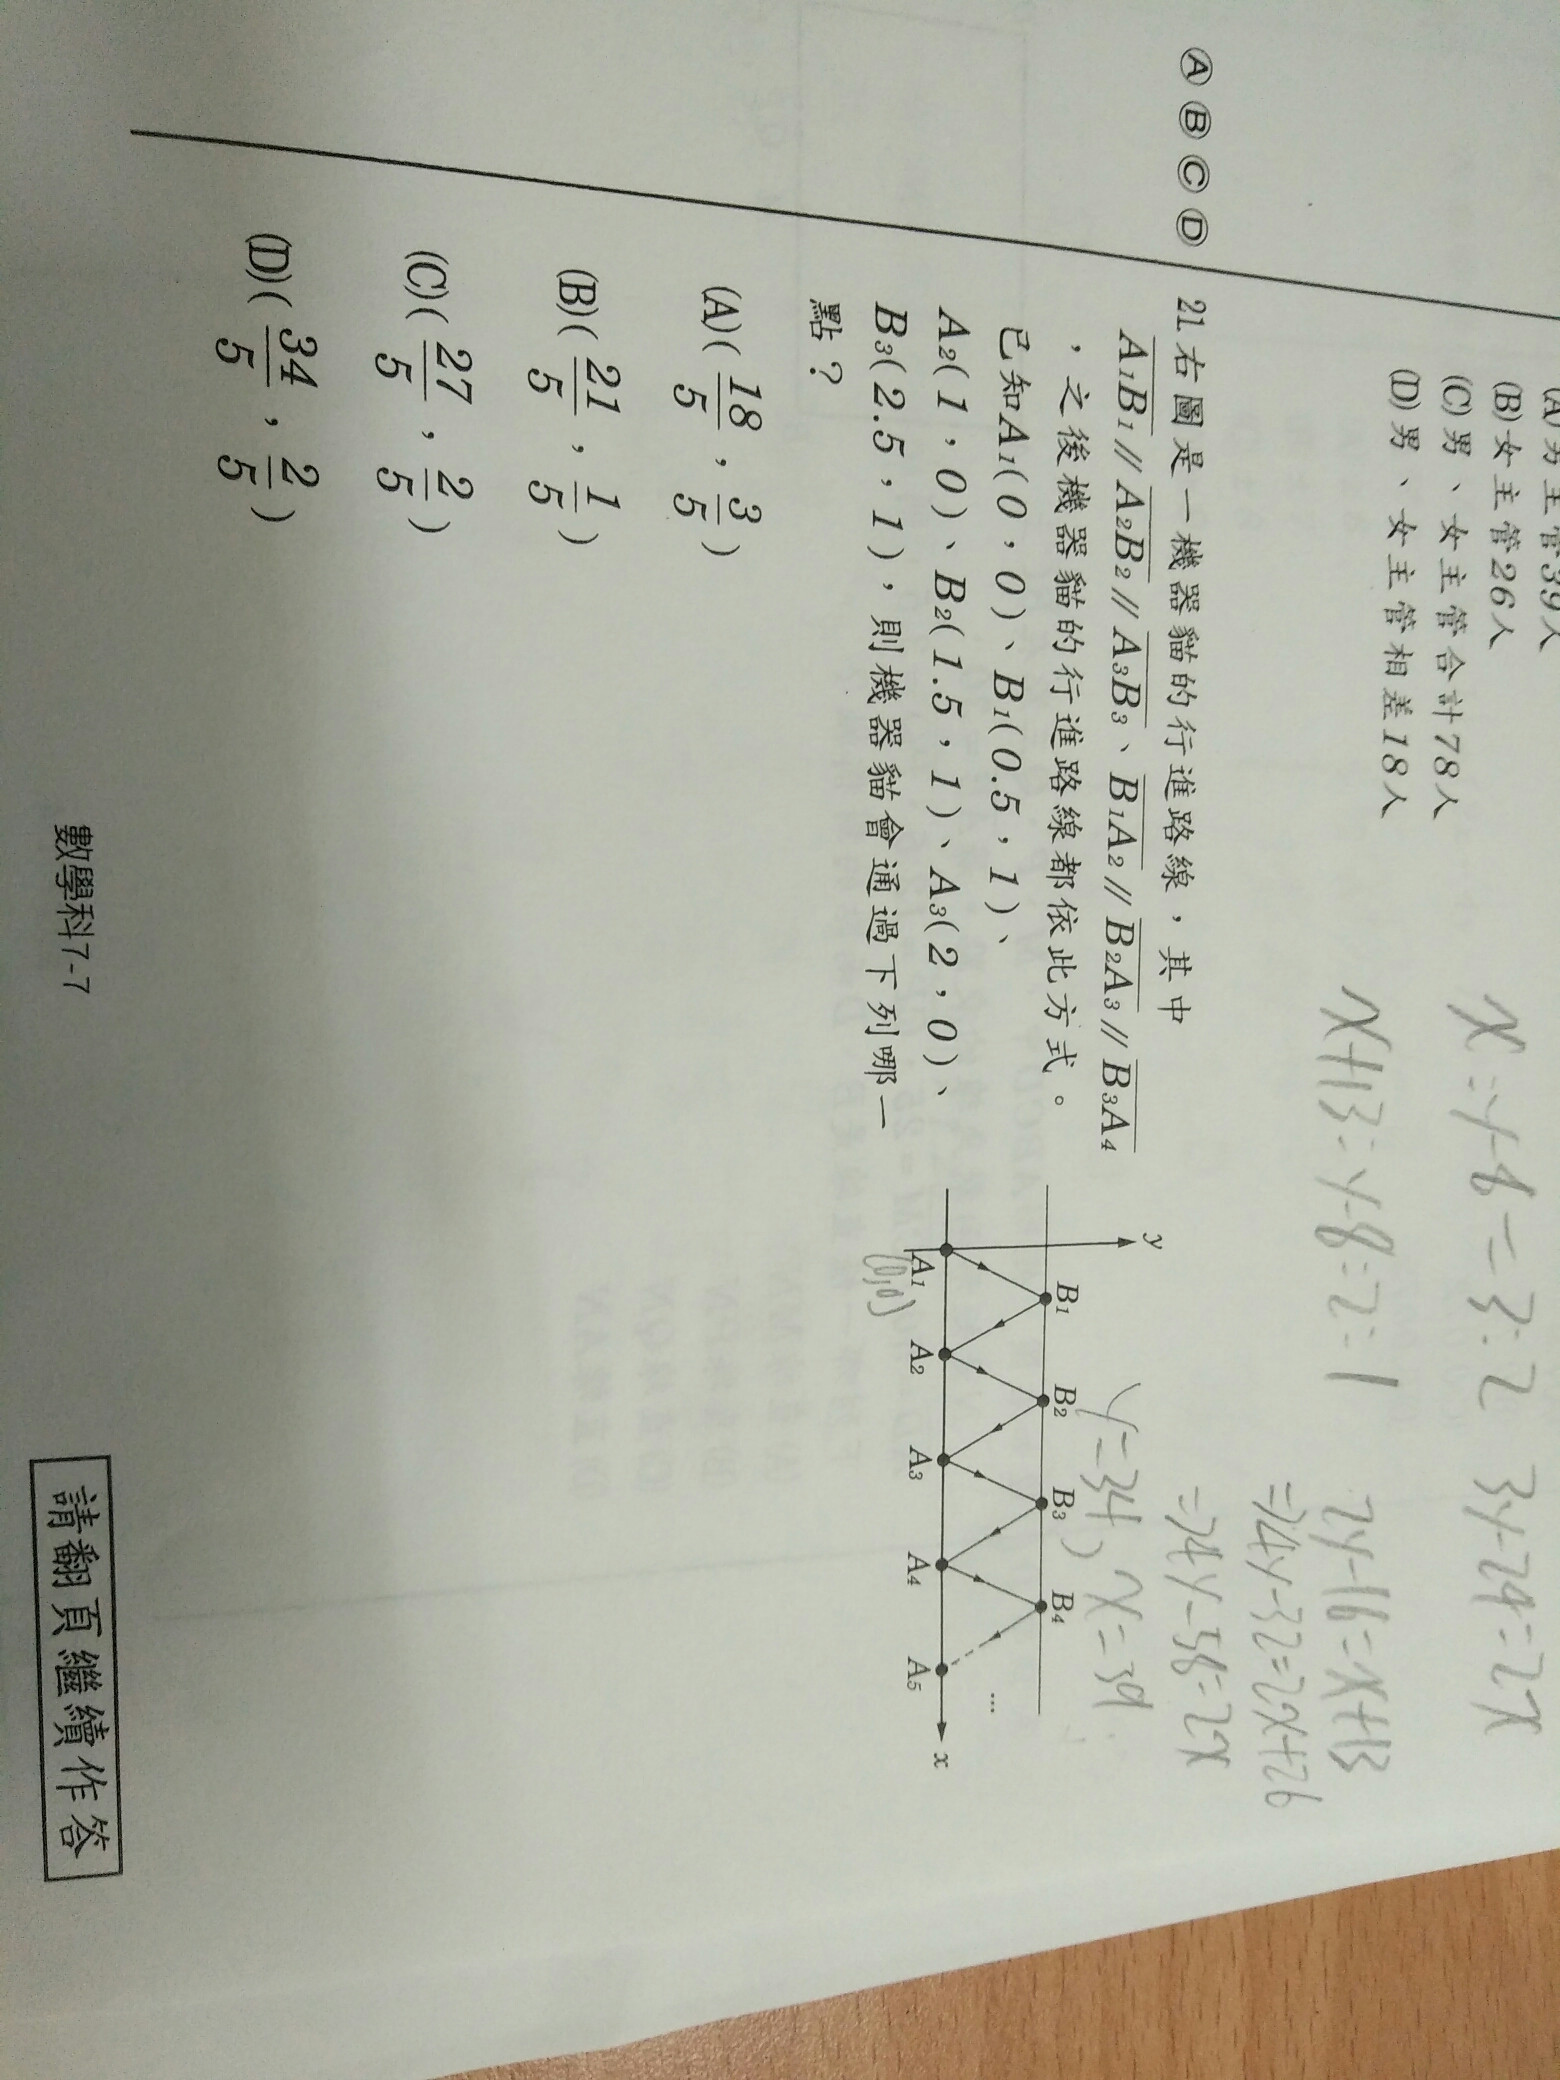 (A)男主管39人
(B)女主管26人
(C)男、女主管合計78人
(D)男、女主管相差18人
x:y-8=3:2 3y-24=2x
x+13:y-8=2:1
2y-16=x+13
=>4y-32=2x+26
=>4y-58=2x
y=34, x=39
Ⓐ Ⓑ Ⓒ Ⓓ
21.右圖是一機器貓的行進路線,其中
A₁B₁//A₂B₂//A₃B₃、B₁A₂//B₂A₃//B₃A₄
,之後機器貓的行進路線都依此方式。
已知A₁(0,0)、B₁(0.5,1)、
A₂(1,0)、B₂(1.5,1)、A₃(2,0)、
B₃(2.5,1),則機器貓會通過下列哪一
點?
y
B₁ B₂ B₃ B₄
...
A₁ A₂ A₃ A₄ A₅ x
(0,0)
(A)(18/5,3/5)
(B)(21/5,1/5)
(C)(27/5,2/5)
(D)(34/5,2/5)
數學科7-7
請翻頁繼續作答